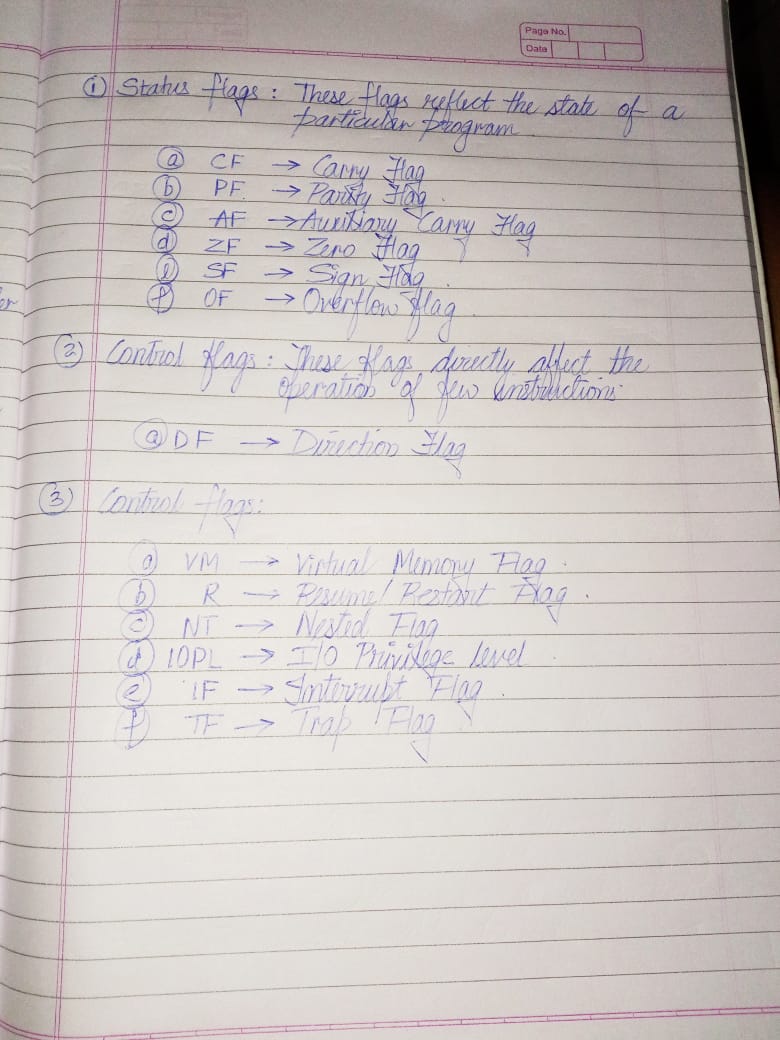 Page No.
Date
① Status flags : These flags reflect the state of a
particular program.
ⓐ CF → Carry Flag
ⓑ PF → Parity Flag.
ⓒ AF → Auxiliary Carry Flag
ⓓ ZF → Zero Flag
ⓔ SF → Sign Flag.
ⓕ OF → Overflow flag.
② Control flags : These flags directly affect the
operation of few instructions
ⓐ DF → Direction Flag
③ Control flags:
ⓐ VM → Virtual Memory Flag.
ⓑ R → Resume/ Restart Flag.
ⓒ NT → Nested Flag
ⓓ IOPL → I/O Privilege level.
ⓔ IF → Interrupt Flag.
ⓕ TF → Trap Flag